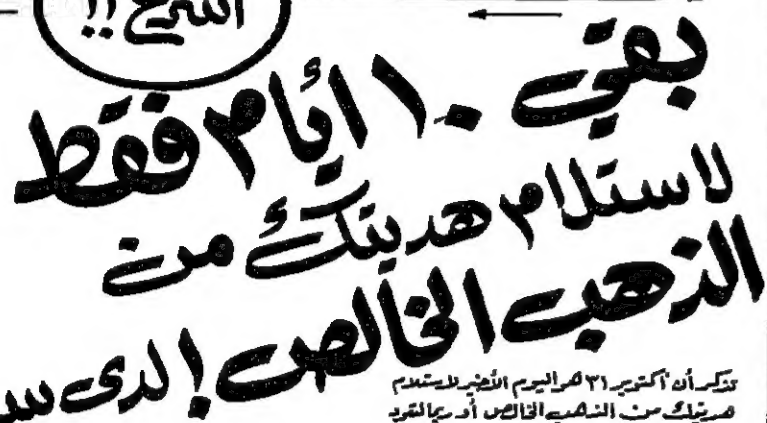 أسرع !!
بقي ١٠ أيام فقط
لاستلام هديتك من
الذهب الخالص! لدى
تذكر أن أكتوبر ٣١ هو اليوم الأخير لاستلام
هديتك من الذهب الخالص أو ربما لتقود